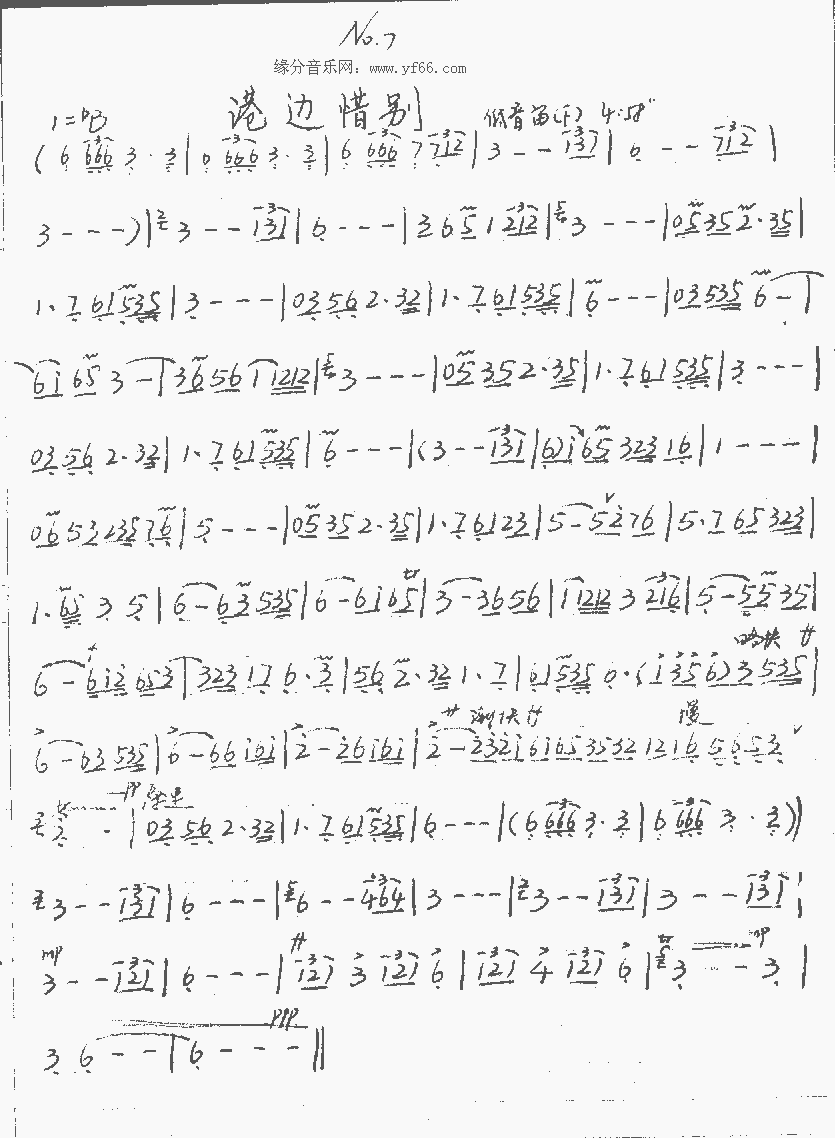 No.7
缘分音乐网：www.yf66.com
港边惜别
1=bB 低音笛(F) 4:58"
(6 666 3·3|6 666 3·3|6 666 7 712|3 - - 131|6 - - 712|
3 - - -)|3 - - 131|6 - - -|2 6 5 1 212|3 - - -|05 35 2·35|
1·7 61 535|3 - - -|03 56 2·32|1·7 61 535|6 - - -|03 535 6 -|
61 65 3 -|36 56 1 1212|3 - - -|05 35 2·35|1·7 61 535|3 - - -|
03 56 2·32|1·7 61 535|6 - - -|(3 - - 131|6)1 65 323 16|1 - - -|
06 53 235 76|5 - - -|05 35 2·35|1·7 61 23|5 - 52 76|5·7 65 323|
1·65 3 5|6 - 63 535|6 - 61 65|3 - 36 56|1 1212 3 216|5 - 55 35|
6 - 612 653|323 17 6·3|56 2·32 1·7|61 535 6·(1356)3 535|
6 - 63 535|6 - 66 161|2 - 26 161|2 - 2321 6165 3532 1216 5653
慢
pp
2 - |03 56 2·32|1·7 61 535|6 - - -|(6 666 3·3|6 666 3·3)|
3 - - 131|6 - - -|6 - - 464|3 - - -|3 - - 131|3 - - 131|
mp mp
3 - - 121|6 - - -|121 3 121 6|121 4 121 6|3 - - 3|
ppp
3 6 - -|6 - - -‖